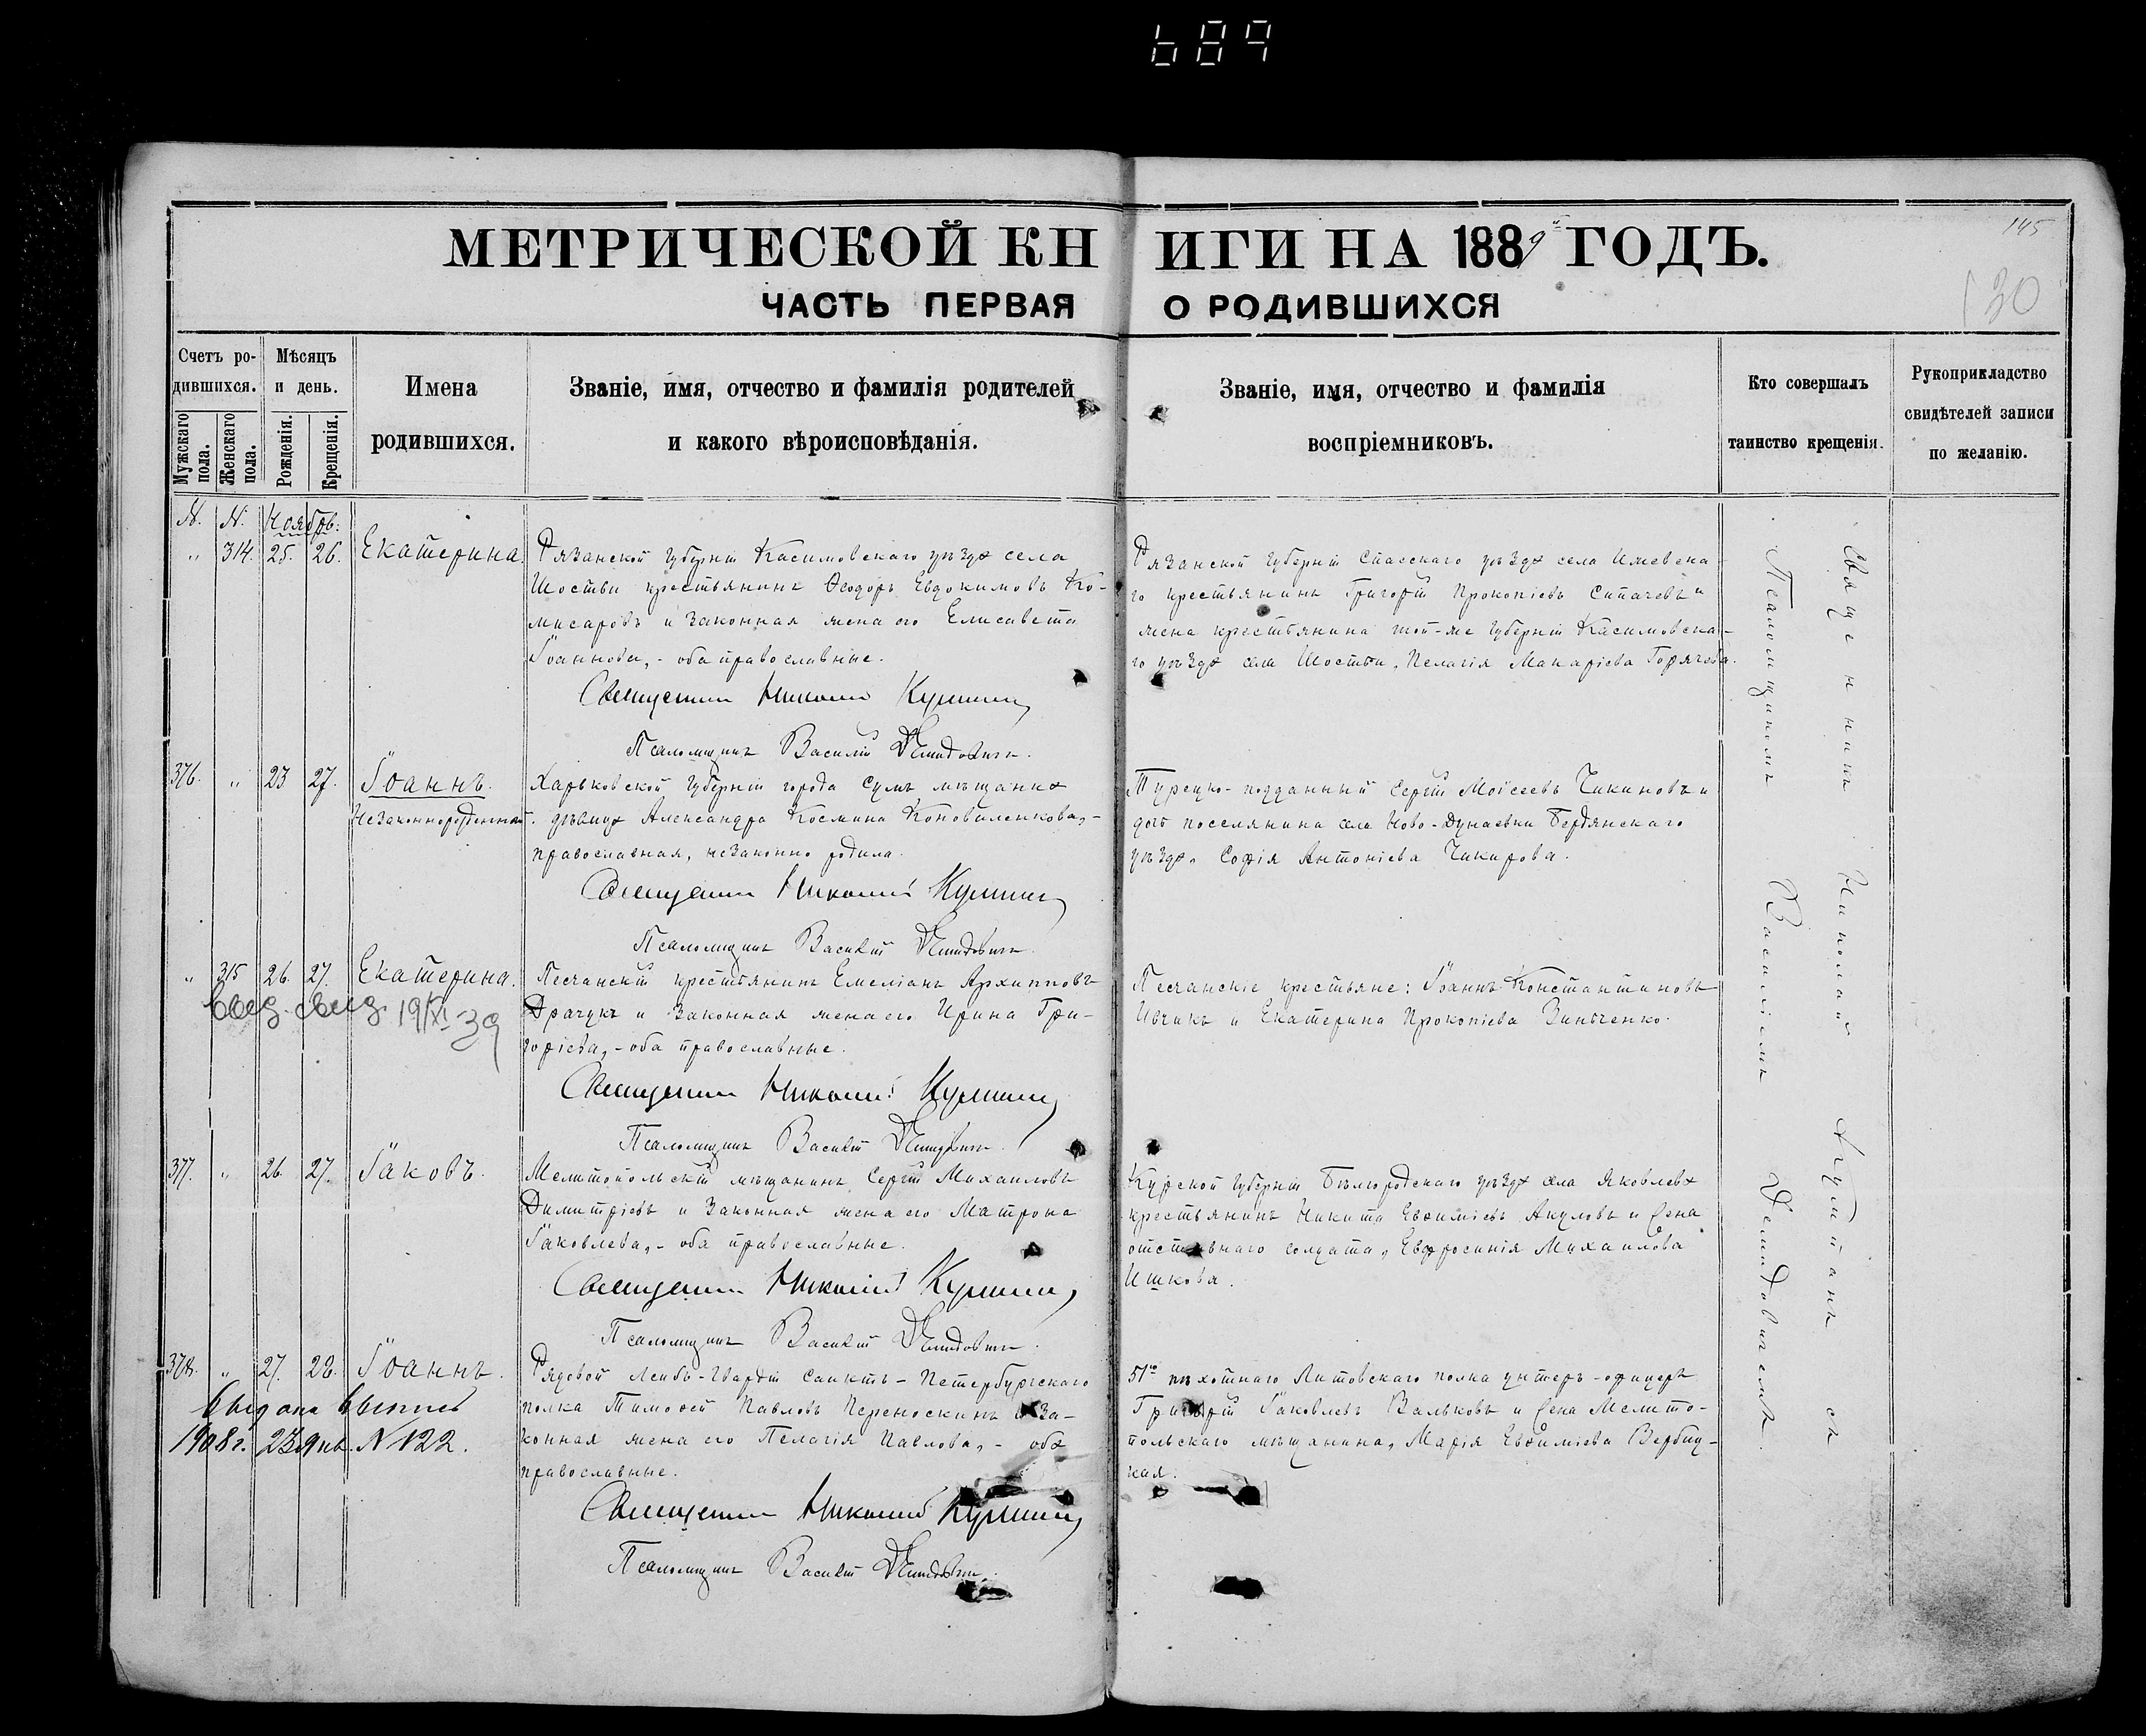 689
МЕТРИЧЕСКОЙ КНИГИ НА 1889й ГОДЪ.
145
130
ЧАСТЬ ПЕРВАЯ О РОДИВШИХСЯ
Счетъ ро-
дившихся.
Мужскаго пола.
Женскаго пола.
Мѣсяцъ
и день.
Рожденія.
Крещенія.
Имена
родившихся.
Званіе, имя, отчество и фамилія родителей
и какого вѣроисповѣданія.
Званіе, имя, отчество и фамилія
воспріемниковъ.
Кто совершалъ
таинство крещенія.
Рукоприкладство
свидѣтелей записи
по желанію.
М. N. Ноябрь.
" 314. 25. 26. Екатерина.
Рязанской губерніи Касимовскаго уѣзда села
Шостьи крестьянинъ Ѳеодоръ Евдокимовъ Ко-
мисаровъ и законная жена его Елисавета
Іоаннова,- оба православные.
Священникъ Николай
Псаломщикъ Василій Демидовичъ.
Рязанской губерніи Спасскаго уѣзда села Ижевска-
го крестьянинъ Григорій Прокопіевъ Сипачевъ и
жена крестьянина той-же губерніи Касимовска-
го уѣзда села Шостьи, Пелагія Макаріева Горячева.
376. " 23 27. Іоаннъ.
Незаконнорожденный.
Харьковской губерніи города Сумъ мѣщанка
дѣвица Александра Космина Коноваленкова,-
православная, незаконно родила.
Священникъ Николай
Псаломщикъ Василій Демидовичъ.
Турецко-подданный Сергій Моісеевъ Чикиновъ и
дочь поселянина села Ново-Дунаевки Бердянскаго
уѣзда, Софія Антоніева Чикирова.
" 315 26. 27. Екатерина.
19/XI-39
Песчанскій крестьянинъ Емеліанъ Архиповъ
Драчукъ и законная жена его Ирина Гри-
горіева,- оба православные.
Священникъ Николай
Псаломщикъ Василій Демидовичъ.
Песчанскіе крестьяне: Іоаннъ Константиновъ
Ивчикъ и Екатерина Прокопіева Зинченко.
377. " 26. 27. Іаковъ.
Мелитопольскій мѣщанинъ Сергій Михаиловъ
Димитріевъ и законная жена его Матрона
Іаковлева,- оба православные.
Священникъ Николай
Псаломщикъ Василій Демидовичъ.
Курской губерніи Бѣлгородскаго уѣзда села Яковлева
крестьянинъ Никита Евѳиміевъ Акуловъ и жена
отставнаго солдата, Евфросинія Михаилова
Ишкова.
378. " 27. 28. Іоаннъ.
1908 г. 23 янв. N 122.
Рядовой Лейбъ-Гвардіи Санктъ-Петербургскаго
полка Тимоѳей Павловъ Переноскинъ и за-
конная жена его Пелагія Павлова,- оба
православные.
Священникъ Николай
Псаломщикъ Василій Демидовичъ.
51го пѣхотнаго Литовскаго полка унтеръ-офицеръ
Григорій Іаковлевъ Вальковъ и жена Мелито-
польскаго мѣщанина, Марія Евѳиміева Вербиц-
кая.
Священникъ Николай
съ
Псаломщикомъ Василіемъ Демидовичемъ